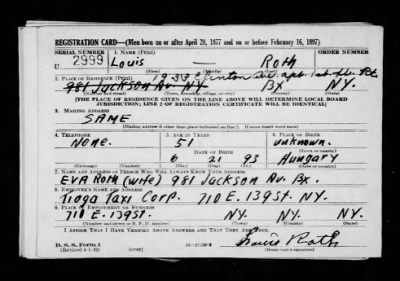 REGISTRATION CARD—(Men born on or after April 28, 1877 and on or before February 16, 1897)
SERIAL NUMBER 1. NAME (Print) ORDER NUMBER
U 2999 Louis — Roth
(First) (Middle) (Last)
2. PLACE OF RESIDENCE (Print)
981 Jackson Av. NY. Bx NY.
(Number and street) (Town, township, village, or city) (County) (State)
[THE PLACE OF RESIDENCE GIVEN ON THE LINE ABOVE WILL DETERMINE LOCAL BOARD
JURISDICTION; LINE 2 OF REGISTRATION CERTIFICATE WILL BE IDENTICAL]
3. MAILING ADDRESS
SAME
[Mailing address if other than place indicated on line 2. If same insert word same]
4. TELEPHONE 5. AGE IN YEARS 6. PLACE OF BIRTH
None. 51 unknown.
DATE OF BIRTH (Town or county)
6 21 93 Hungary
(Exchange) (Number) (Mo.) (Day) (Yr.) (State or country)
7. NAME AND ADDRESS OF PERSON WHO WILL ALWAYS KNOW YOUR ADDRESS
EVA Roth (wife) 981 Jackson Av. Bx.
8. EMPLOYER'S NAME AND ADDRESS
Tioga Taxi Corp. 710 E. 139 St. NY.
9. PLACE OF EMPLOYMENT OR BUSINESS
710 E. 139 St. NY. NY. NY.
(Number and street or R. F. D. number) (Town) (County) (State)
I AFFIRM THAT I HAVE VERIFIED ABOVE ANSWERS AND THAT THEY ARE TRUE.
D. S. S. Form 1
Louis Roth
(Registrant's signature)